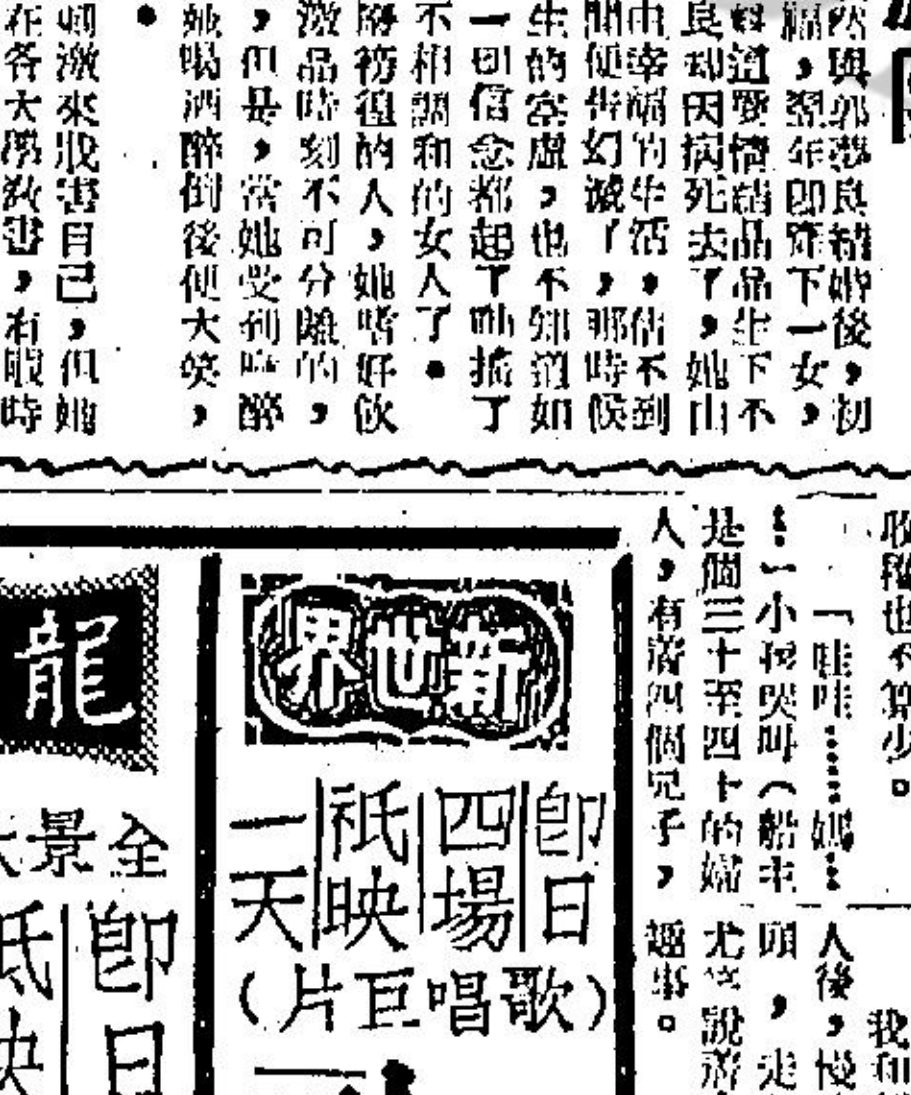 然與郭夢良結婚後，初
福，翌年卽產下一女，
料這愛情結晶品生下不
良却因病死去了，她由
由幸福的生活，估不到
間便告幻滅了，那時候
生的空虛，也不知道如
一切信念都起了動搖了
不相調和的女人了。
徬徨的人，她嗜好飲
激品時刻不可分離的，
，但是，當她受到麻醉
她喝酒醉倒後便大笑，
。
刺激來戕害自己，但她
在各大學敎書，有暇時
收穫也不算少。
「哇哇……媽…
…」小孩哭叫（船主
是個三十至四十的婦
人，有着四個兒子，
我和
人後，慢
頭，走
尤其說着
趣事。
新世界
卽日
四場
祇映
一天
（歌唱巨片）
龍
全景
卽日
祇映